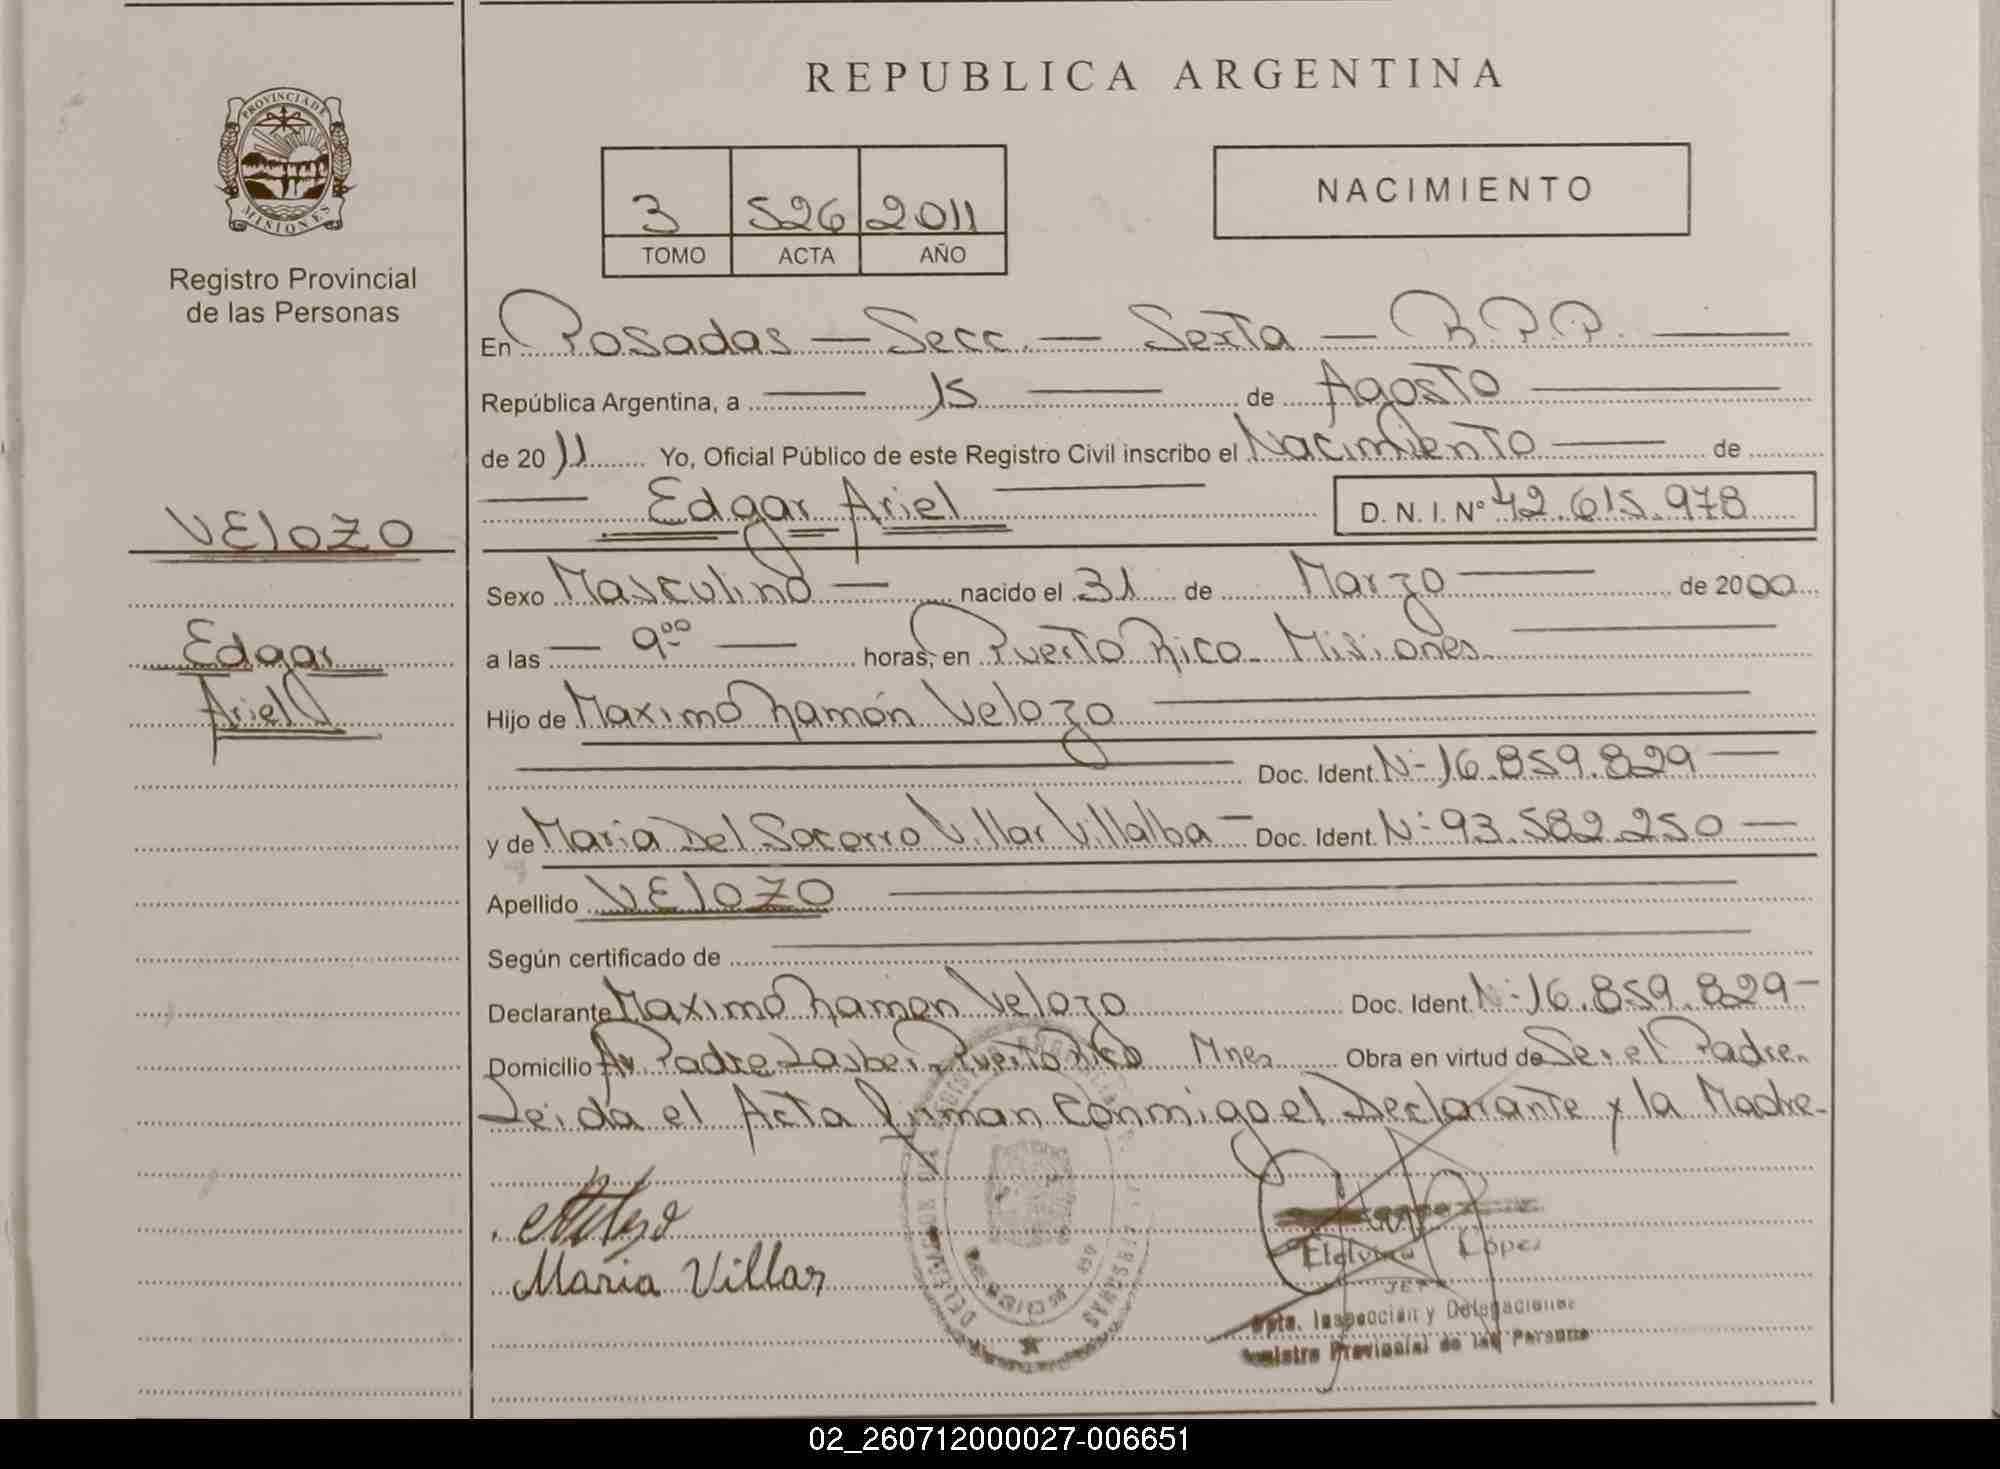 REPUBLICA ARGENTINA
PROVINCIA DE
MISIONES
Registro Provincial
de las Personas
3 526 2011
TOMO ACTA AÑO
NACIMIENTO
En Posadas — Secc. — Sexta — R.P.P. —
República Argentina, a — 15 — de Agosto —
de 2011 Yo, Oficial Público de este Registro Civil inscribo el Nacimiento — de
— Edgar Ariel — D. N. I. N° 42.615.978
VELOZO
Edgar
Ariel
Sexo Masculino — nacido el 31 de Marzo — de 2000
a las — 9⁰⁰ — horas, en Puerto Rico - Misiones —
Hijo de Maximo Ramón Velozo —
— Doc. Ident. N- 16.859.829 —
y de Maria Del Socorro Villar Villalba — Doc. Ident. N: 93.582.250 —
Apellido VELOZO —
Según certificado de —
Declarante Maximo Ramon Velozo Doc. Ident. N- 16.859.829 —
Domicilio Av Padre Puerto Rico Mnes Obra en virtud de Ser el Padre.
Leida el Acta firman conmigo el Declarante y la Madre-
Maria Villar
López
JEFE
Dpto. Inspección y Delegaciones
Registro Provincial de las Personas
02_260712000027-006651